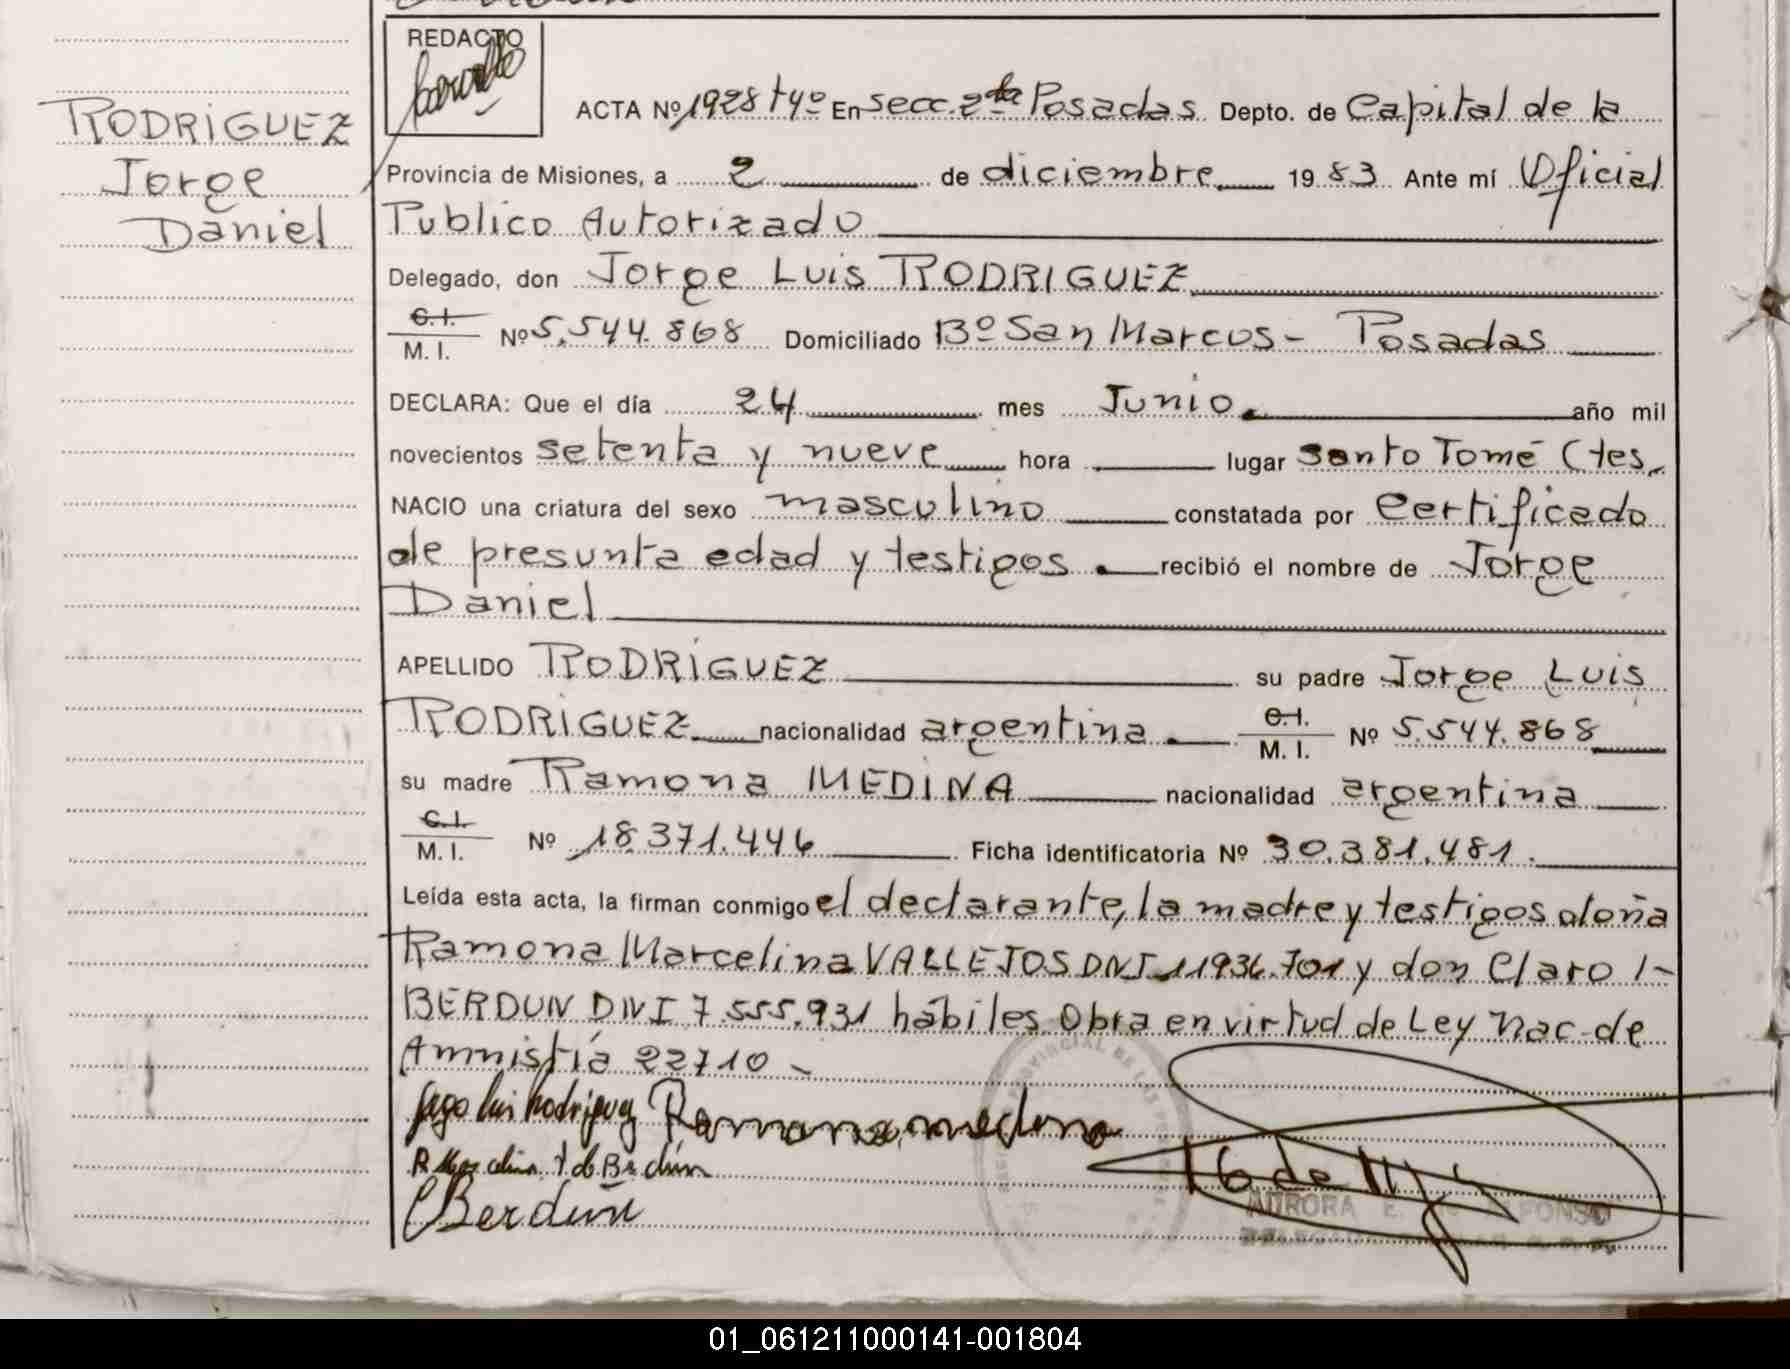 RODRIGUEZ
Jorge
Daniel
REDACTO
ACTA Nº 1928 tº 4º En secc. 2da Posadas. Depto. de Capital de la
Provincia de Misiones, a 2 de diciembre 1983 Ante mí Oficial
Publico Autorizado
Delegado, don Jorge Luis RODRIGUEZ
C.I.
M. I. Nº 5.544.868 Domiciliado Bº San Marcos - Posadas
DECLARA: Que el día 24 mes Junio año mil
novecientos setenta y nueve hora lugar Santo Tomé Ctes.
NACIO una criatura del sexo masculino constatada por certificado
de presunta edad y testigos recibió el nombre de Jorge
Daniel
APELLIDO RODRIGUEZ su padre Jorge Luis
RODRIGUEZ nacionalidad argentina C.I.
M. I. Nº 5.544.868
su madre Ramona MEDINA nacionalidad argentina
C.I.
M. I. Nº 18.371.446 Ficha identificatoria Nº 30.381.481.
Leída esta acta, la firman conmigo el declarante, la madre y testigos doña
Ramona Marcelina VALLEJOS DNI 11936.701 y don Claro I-
BERDUN DNI 7.555.931 hábiles Obra en virtud de Ley Nac. de
Amnistía 22710 -
Jorge Luis Rodriguez Ramona medina
R Marcelina V de Berdún
C Berdun
AURORA E. DE ALFONSO
01_061211000141-001804